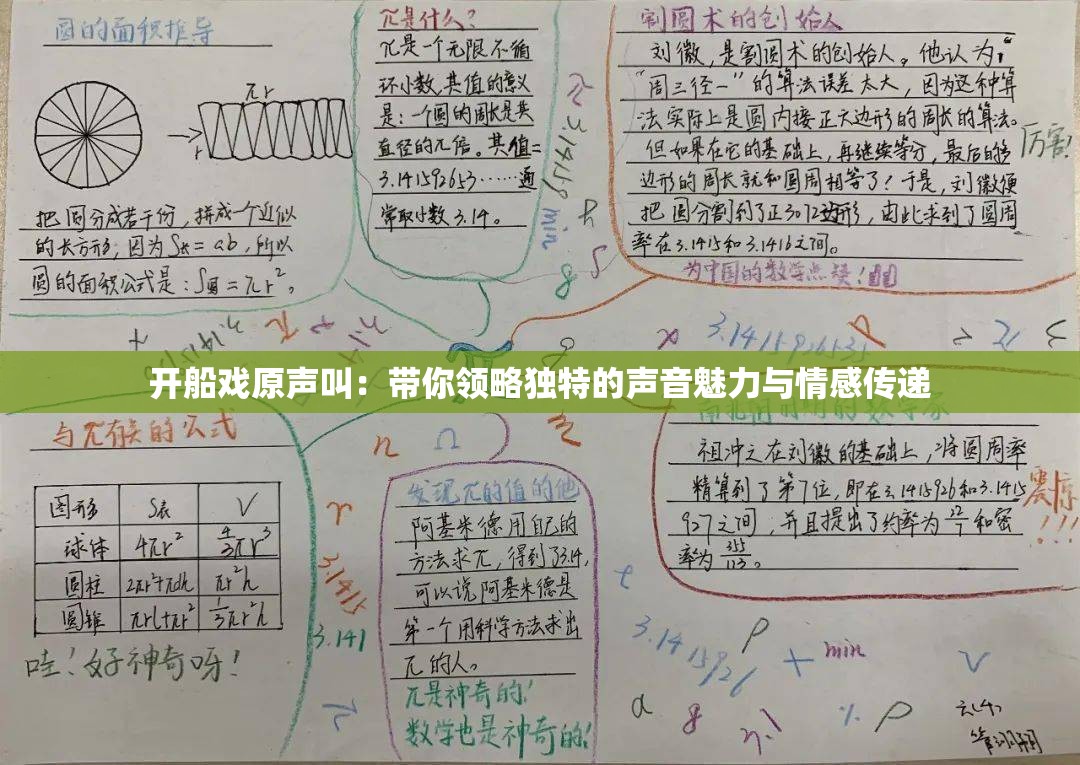 圆的面积推导
πr
r
把圆分成若干份，拼成一个近似
的长方形；因为S长=ab，所以
圆的面积公式是：S圆=πr²。
π是什么？
π是一个无限不循
环小数，其值的意义
是：一个圆的周长是其
直径的π倍。其值=
3.141592653……通
常取小数3.14。
割圆术的创始人
刘徽，是割圆术的创始人。他认为：
“周三径一”的算法误差太大，因为这种算
法实际上是圆内接正六边形的周长的算法。
但如果在它的基础上，再继续等分，最后的
边形的周长就和圆周相等了！于是，刘徽便
把圆分割到了正3072边形，由此求到了圆周
率在3.1415和3.1416之间。
厉害！
为中国的数学点赞！
π 3.14159 min
3.1415926535
开船戏原声叫：带你领略独特的声音魅力与情感传递
与π有关的公式
图形 S表 V
球体 4πr² 4/3πr³
圆柱 2πr²+πdh πr²h
圆锥 πrl+πr² 1/3πr²h
哇！好神奇呀！
r
3.1415
3.141
π
n Ω
发现π的值的他
阿基米德用自己的
方法求π，得到了3.14，
可以说阿基米德是
第一个用科学方法求出
π的人。
π是神奇的！
数学也是神奇的！
祖冲之在刘徽的基础上，将圆周率
精算到了第7位，即在3.1415926和3.1415
927之间，并且提出了约率为22/7和密
率为355/113。
震惊!!!
t
3.1415926
ρ + min V
a 8 % ρ